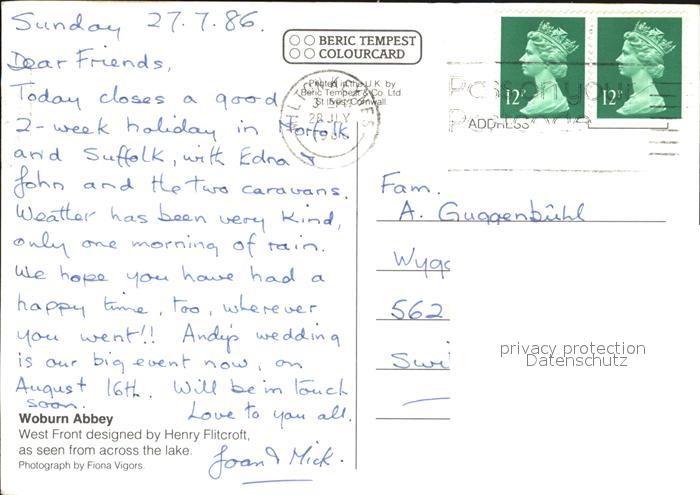 Sunday 27.7.86.
Dear Friends,
Today closes a good
2-week holiday in Norfolk
and Suffolk, with Edna &
John and the two caravans.
Weather has been very kind,
only one morning of rain.
We hope you have had a
happy time, too, wherever
you went!! Andy's wedding
is our big event now, on
August 16th. Will be in touch
soon. Love to you all.
Joan & Mick.
Woburn Abbey
West Front designed by Henry Flitcroft,
as seen from across the lake.
Photograph by Fiona Vigors.
BERIC TEMPEST
COLOURCARD
Printed in the U.K. by
Beric Tempest & Co. Ltd.
St Ives, Cornwall.
28 JLY
1986
12P
12P
Pass on your
Postcode
ADDRESS
Fam.
A. Guggenbühl
562
privacy protection
Datenschutz